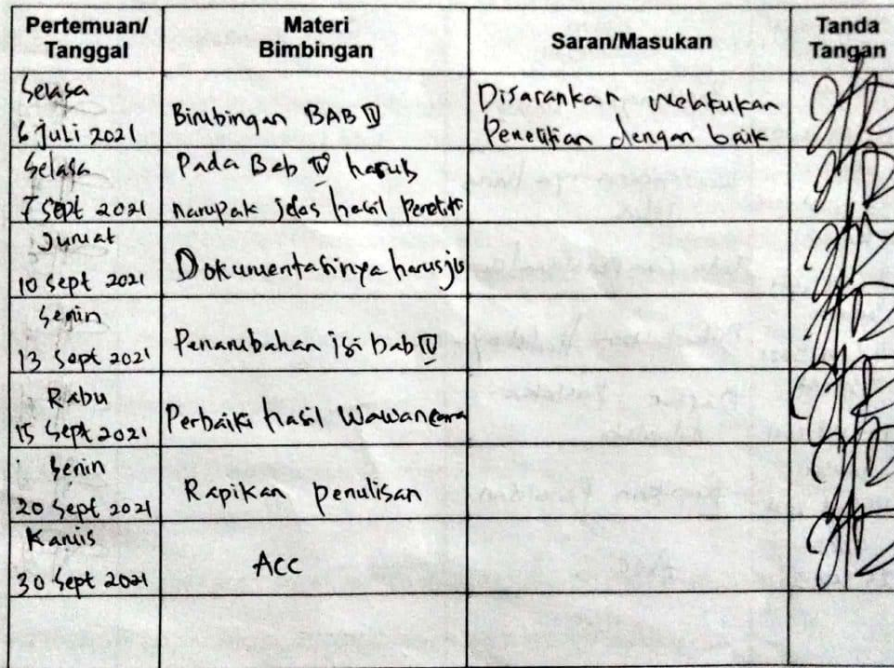 Pertemuan/ Tanggal
Materi Bimbingan
Saran/Masukan
Tanda Tangan
Selasa
6 Juli 2021
Bimbingan BAB IV
Disarankan melakukan
Penelitian dengan baik
Selasa
7 Sept 2021
Pada Bab IV harus
nampak jelas hasil Peneliti
Jumat
10 Sept 2021
Dokumentasinya harus
Senin
13 Sept 2021
Penambahan isi bab IV
Rabu
15 Sept 2021
Perbaiki hasil Wawancara
Senin
20 Sept 2021
Rapikan penulisan
Kamis
30 Sept 2021
Acc